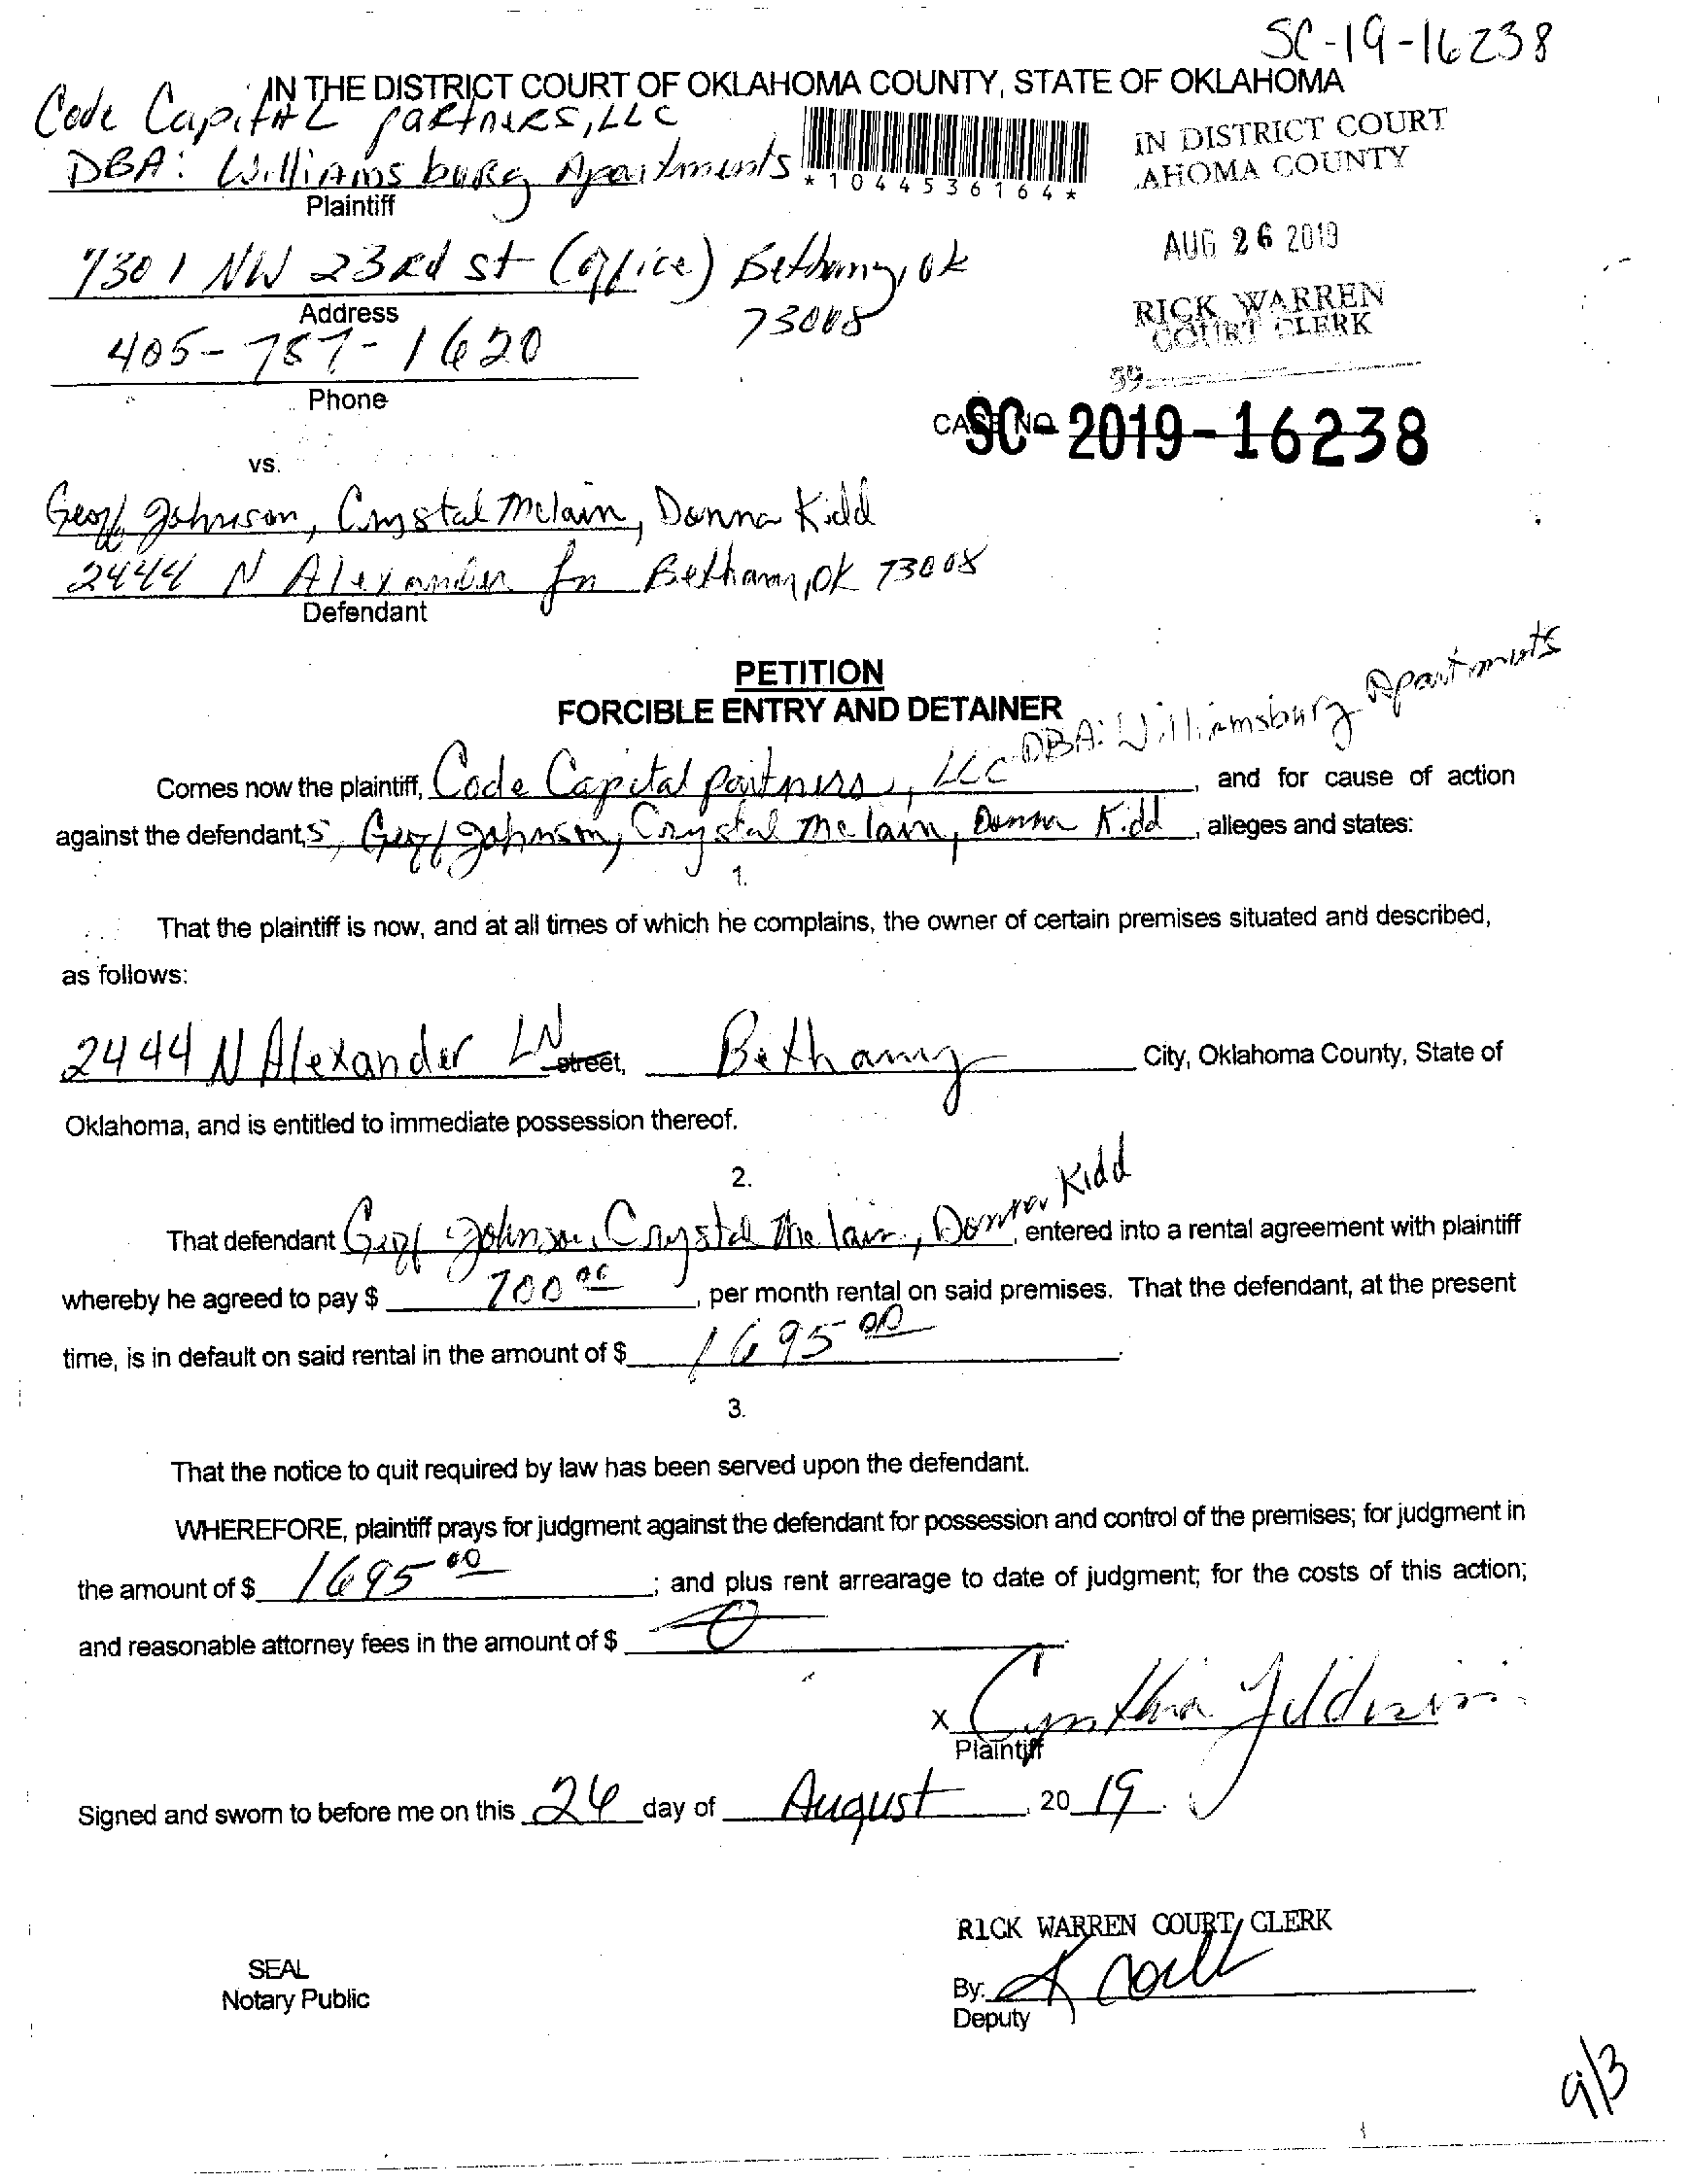 SC-19-16238
IN THE DISTRICT COURT OF OKLAHOMA COUNTY, STATE OF OKLAHOMA
Code CapitAL PaRtneRs, LLC
DBA: WilliAms buRg Apartments
*1044536164*
IN DISTRICT COURT
AHOMA COUNTY
Plaintiff
AUG 26 2019
7301 NW 23Rd st (office) Bethany, Ok
73008
Address
RICK WARREN
COURT CLERK
405-787-1620
39
Phone
CASE NO.
SC-2019-16238
vs.
Geoff Johnson, Crystal Mclain, Donna Kidd
2444 N Alexander Ln Bethany, OK 73008
Defendant
PETITION
FORCIBLE ENTRY AND DETAINER
Comes now the plaintiff, Code Capital partners, LLC DBA: Williamsburg Apartments, and for cause of action
against the defendant,s, Geoff Johnson, Crystal Mclain, Donna Kidd, alleges and states:
1.
That the plaintiff is now, and at all times of which he complains, the owner of certain premises situated and described,
as follows:
2444 N Alexander LN street, Bethany City, Oklahoma County, State of
Oklahoma, and is entitled to immediate possession thereof.
2.
That defendant Geoff Johnson, Crystal Mclain, Donna Kidd, entered into a rental agreement with plaintiff
whereby he agreed to pay $ 700 00, per month rental on said premises. That the defendant, at the present
time, is in default on said rental in the amount of $ 1695 00.
3.
That the notice to quit required by law has been served upon the defendant.
WHEREFORE, plaintiff prays for judgment against the defendant for possession and control of the premises; for judgment in
the amount of $ 1695 00; and plus rent arrearage to date of judgment; for the costs of this action;
and reasonable attorney fees in the amount of $ 0
x Cynthia
Plaintiff
Signed and sworn to before me on this 26 day of August, 20 19.
RICK WARREN COURT CLERK
SEAL
Notary Public
By:
Deputy
9/3